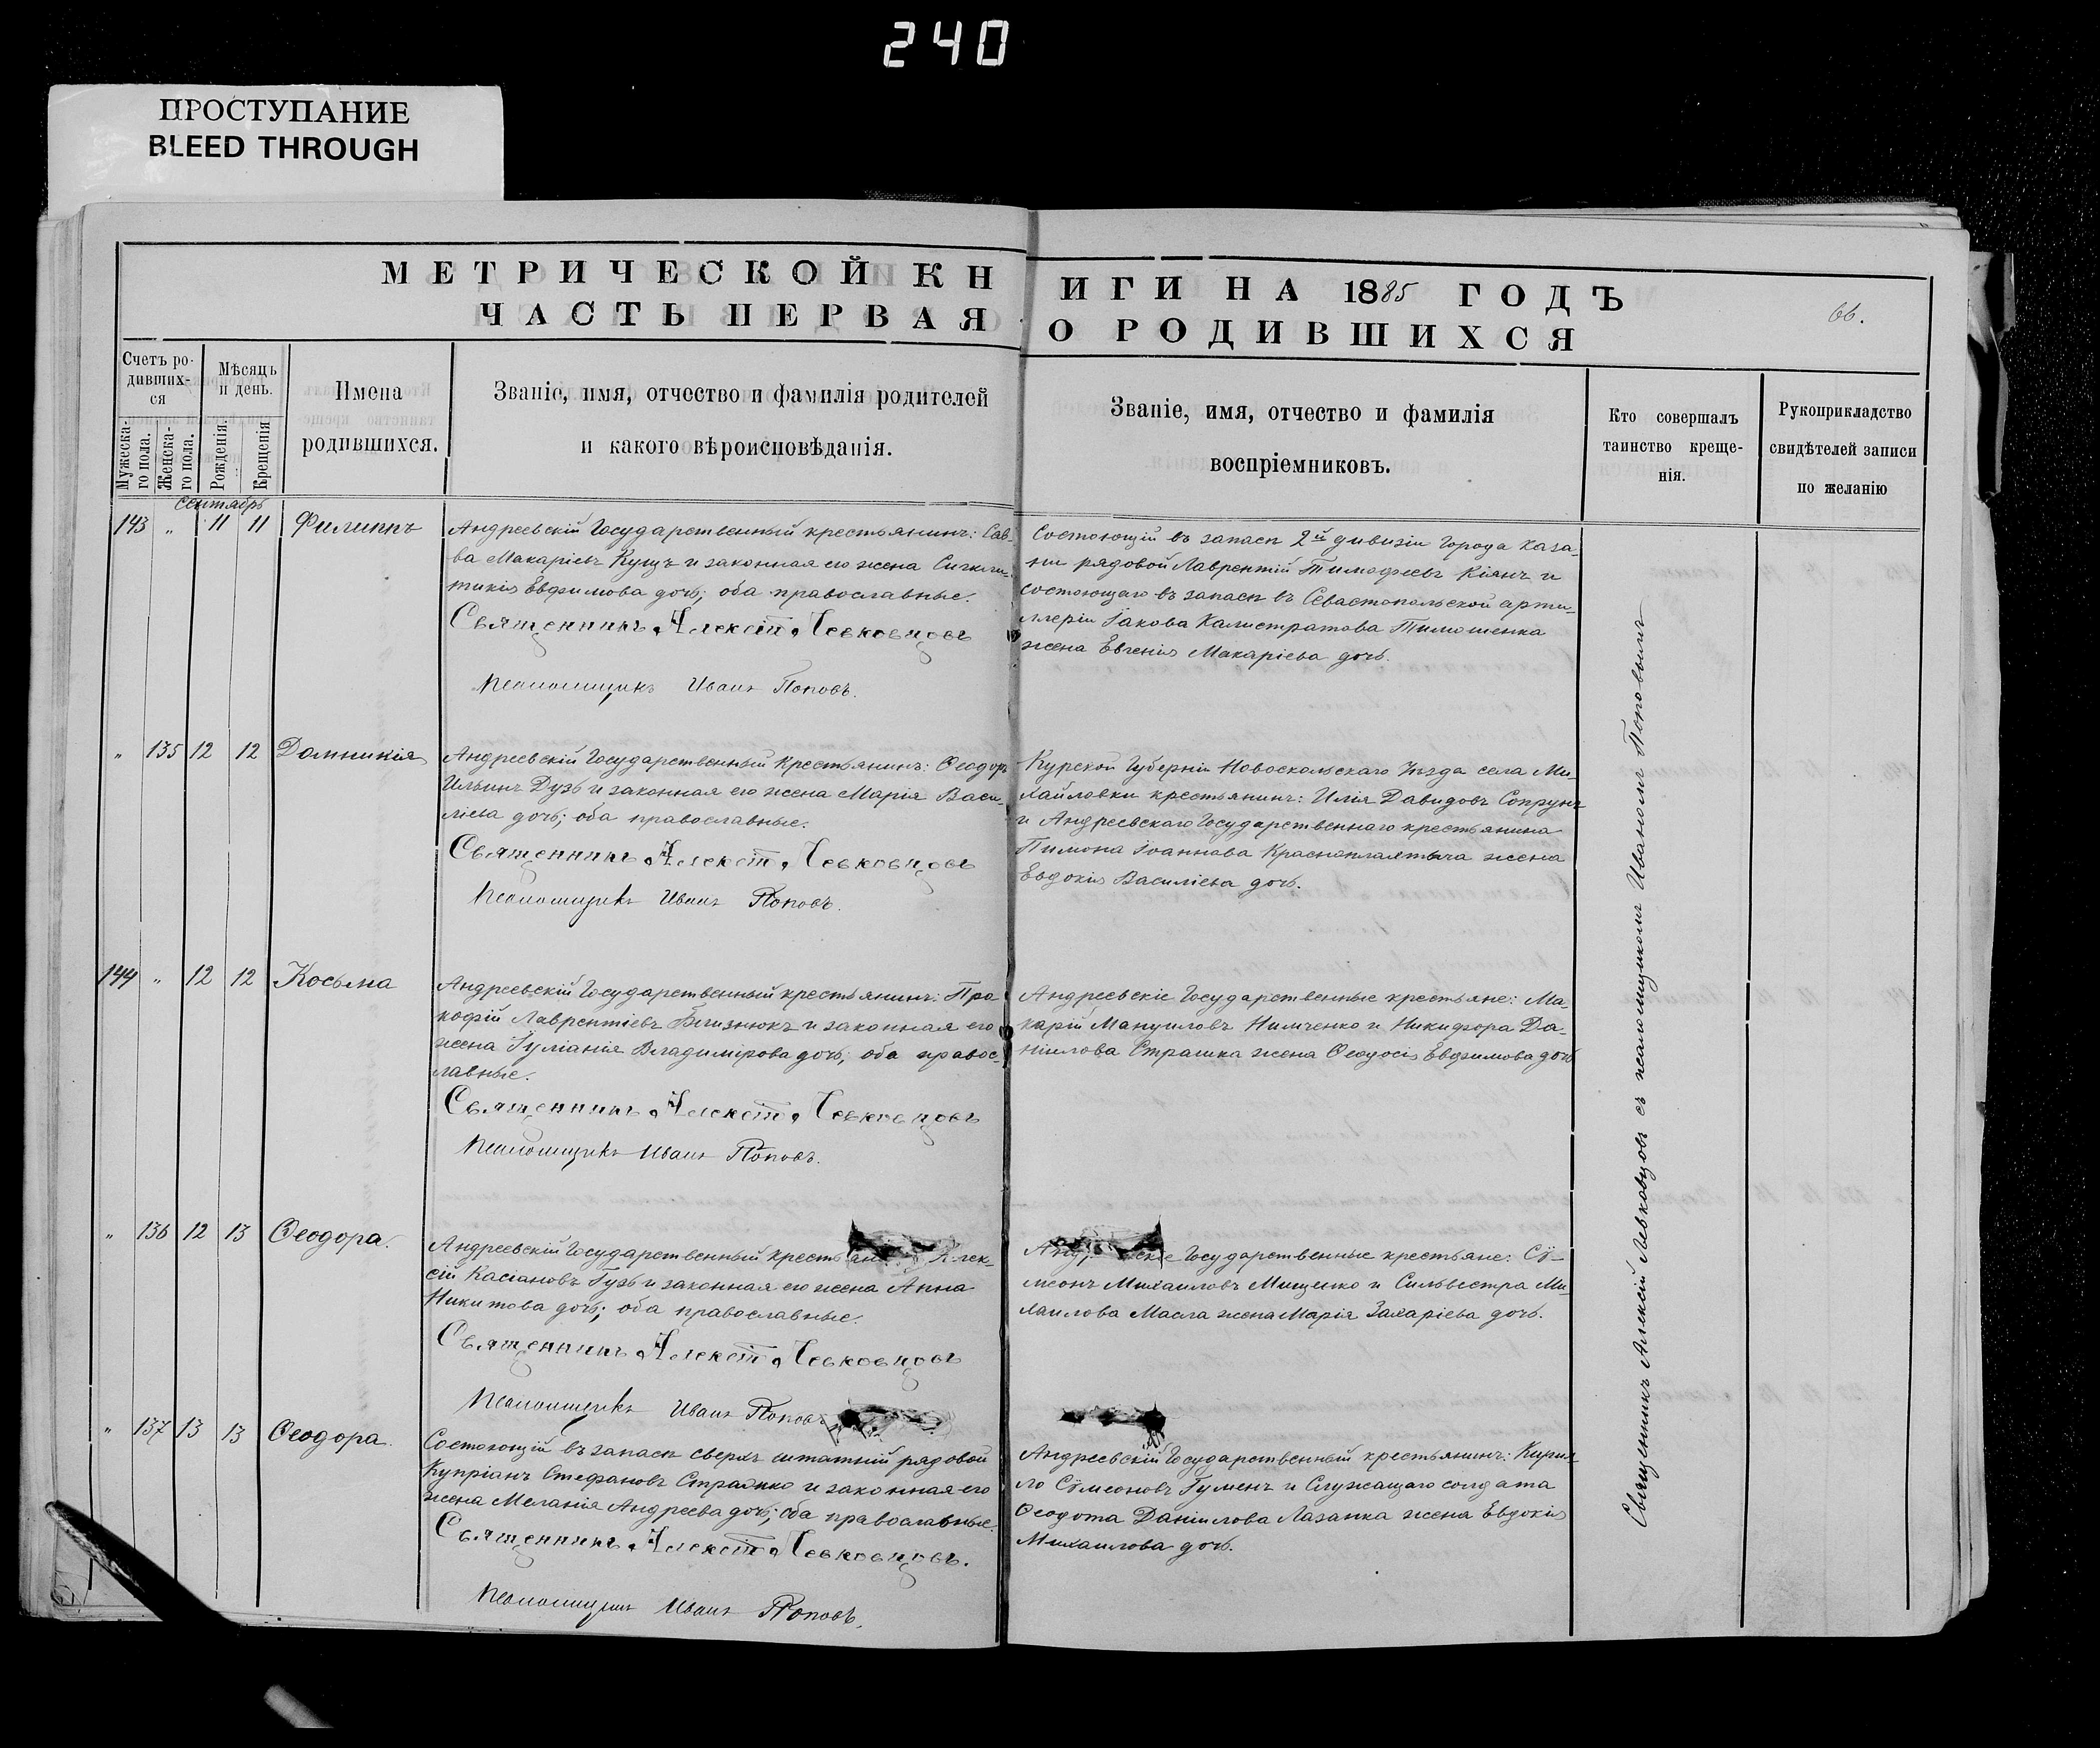 240
ПРОСТУПАНИЕ
BLEED THROUGH
МЕТРИЧЕСКОЙ КНИГИ НА 1885 ГОДЪ
ЧАСТЬ ПЕРВАЯ О РОДИВШИХСЯ
66.
Счетъ ро-
дивших-
ся
Мужеска-
го пола.
Женска-
го пола.
Мѣсяцъ
и день.
Рожденія.
Крещенія
Имена
родившихся.
Званіе, имя, отчество и фамилія родителей
и какого вѣроисповѣданія.
Званіе, имя, отчество и фамилія
воспріемниковъ.
Кто совершалъ
таинство креще-
нія.
Рукоприкладство
свидѣтелей записи
по желанію
Сентябрь
143 „ 11 11 Филиппъ
Андреевскій Государственный крестьянинъ: Сав-
ва Макаріевъ Кущъ и законная его жена Сигкли-
тикія Евфимова дочь; оба православные.
Священникъ Алексій Левковцовъ
Псаломщикъ Иванъ Поповъ.
Состоющій въ запасѣ 2й дивизіи города Каза-
ни рядовой Лаврентій Тимофеевъ Кіянъ и
состоющаго въ запасѣ въ Севастопольской арти-
ллеріи Іакова Калистратова Тимошенка
жена Евгенія Макаріева дочь.
„ 135 12 12 Домникія
Андреевскій Государственный Крестьянинъ: Ѳеодоръ
Ильинъ Дузь и законная его жена Марія Васи-
ліева дочь; оба православные.
Священникъ Алексій Левковцовъ
Псаломщикъ Иванъ Поповъ.
Курской Губерніи Новоскольскаго Уѣзда села Ми-
хайловки крестьянинъ: Илія Давидовъ Сопрунъ
и Андреевскаго Государственнаго крестьянина
Пимона Іоаннова жена
Евдокія Василіева дочь.
144 „ 12 12 Косьма
Андреевскій Государственный крестьянинъ: Про
кофій Лаврентіевъ Близнюкъ и законная его
жена Іуліанія Владимірова дочь; оба правос-
лавные.
Священникъ Алексій Левковцовъ
Псаломщикъ Иванъ Поповъ.
Андреевскіе Государственные крестьяне: Ма-
карій Мануиловъ Нимченко и Никифора Да-
ніилова Страшка жена Ѳеодосія Евфимова дочь
„ 136 12 13 Ѳеодора.
Андреевскій Государственный Крестьян Алек-
сій Касіановъ Гузь и законная его жена Анна
Никитова дочь; оба православные.
Священникъ Алексій Левковцовъ
Псаломщикъ Иванъ Поповъ
Анд скіе Государственные крестьяне: Сѵ-
меонъ Михаиловъ Мищенко и Сильвестра Ми-
хаилова Масла жена Марія Захаріева дочь.
„ 137 13 13 Ѳеодора.
Состоющій въ запасѣ сверхъ штатній рядовой
Купріанъ Стефановъ и законная его
жена Меланія Андреева дочь; оба православные.
Священникъ Алексій Левковцовъ.
Псаломщикъ Иванъ Поповъ.
Андреевскій Государственный крестьянинъ: Кирил
ло Сѵмеоновъ Гуменъ и Служащаго солдата
Ѳеодота Даніилова Лазанка жена Евдокія
Михаилова дочь.
Священникъ Алексій Левковцовъ съ псаломщикомъ Иваномъ Поповымъ